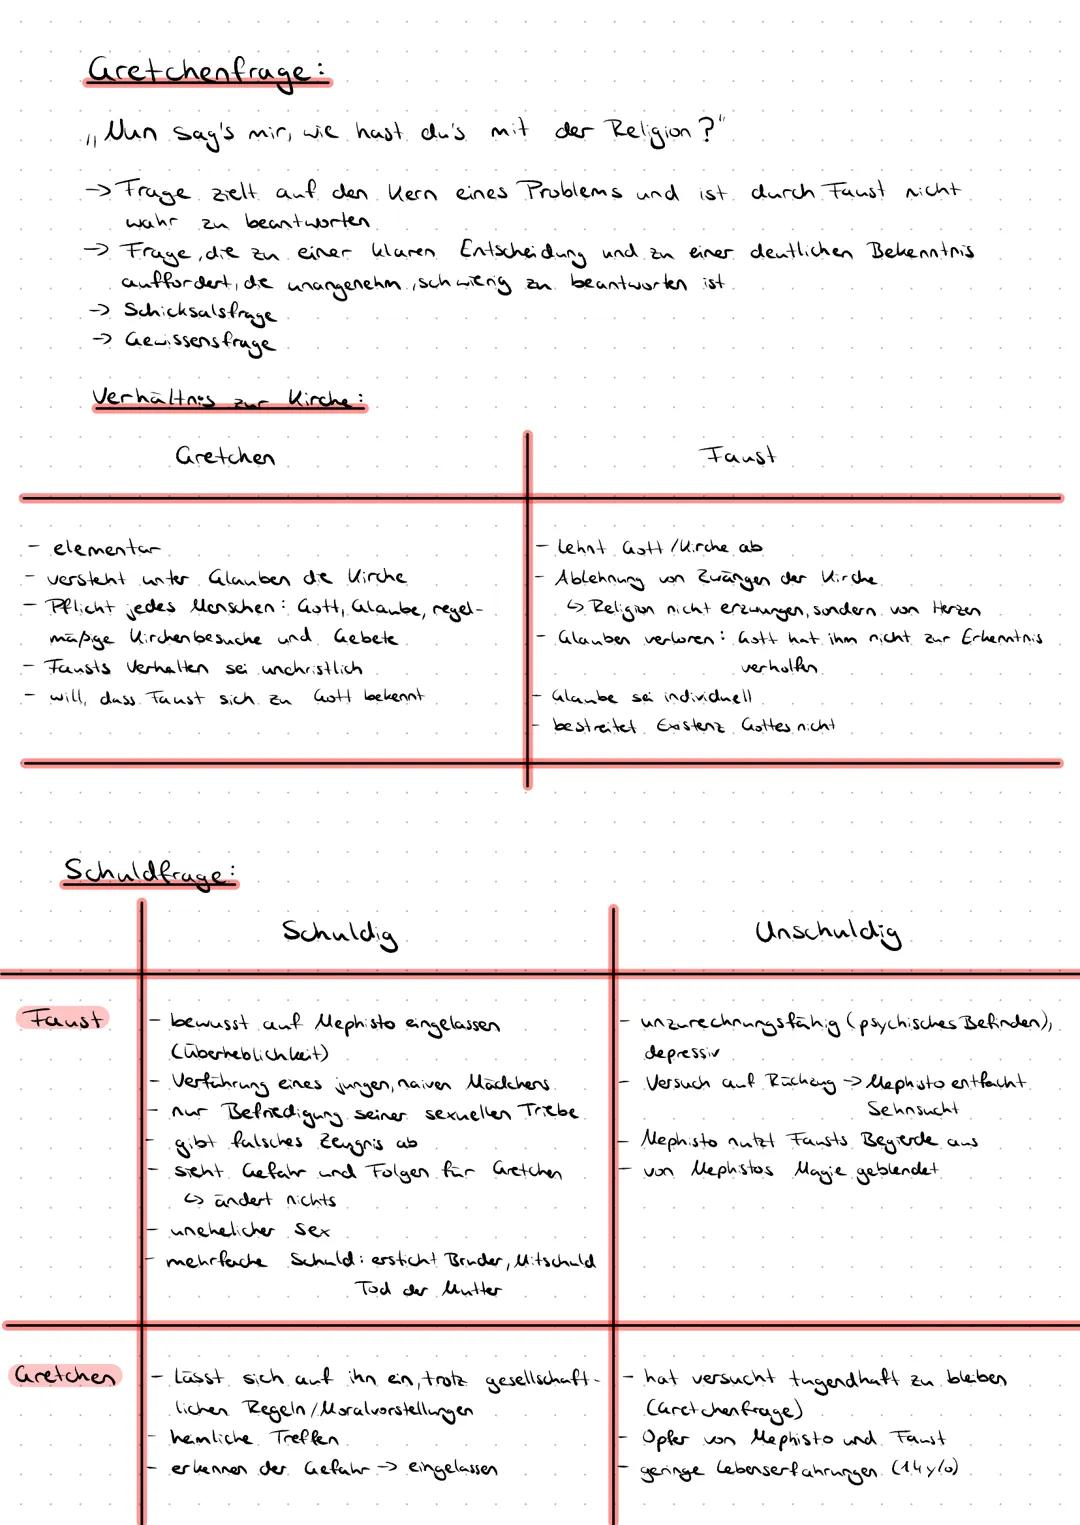 Gretchenfrage:
„Nun sag's mir, wie hast du's mit der Religion?"
→ Frage zielt auf den Kern eines Problems und ist durch Faust nicht
wahr zu beantworten
→ Frage, die zu einer klaren Entscheidung und zu einer deutlichen Bekenntnis
auffordert, die unangenehm, schwierig zu beantworten ist
→ Schicksalsfrage
→ Gewissensfrage
Verhältnis zur Kirche:
Gretchen
Faust
- elementar
- versteht unter Glauben die Kirche
- Pflicht jedes Menschen: Gott, Glaube, regel-
mäßige Kirchenbesuche und Gebete
- Fausts Verhalten sei unchristlich
- will, dass Faust sich zu Gott bekennt
- lehnt Gott/Kirche ab
- Ablehnung von Zwängen der Kirche
↳ Religion nicht erzwungen, sondern von Herzen
- Glauben verloren: Gott hat ihm nicht zur Erkenntnis
verholfen
- Glaube sei individuell
- bestreitet Existenz Gottes nicht
Schuldfrage:
Schuldig
Unschuldig
Faust
- bewusst auf Mephisto eingelassen
(Überheblichkeit)
- Verführung eines jungen, naiven Mädchens
- nur Befriedigung seiner sexuellen Triebe
- gibt falsches Zeugnis ab
- sieht Gefahr und Folgen für Gretchen
↳ ändert nichts
- unehelicher Sex
- mehrfache Schuld: ersticht Bruder, Mitschuld
Tod der Mutter
- unzurechnungsfähig (psychisches Befinden),
depressiv
- Versuch auf Rückzug → Mephisto entfacht
Sehnsucht
- Mephisto nutzt Fausts Begierde aus
- von Mephistos Magie geblendet
Gretchen
- lässt sich auf ihn ein, trotz gesellschaft-
lichen Regeln/Moralvorstellungen
- heimliche Treffen
- erkennen der Gefahr → eingelassen
- hat versucht tugendhaft zu bleiben
(Gretchenfrage)
- Opfer von Mephisto und Faust
- geringe Lebenserfahrungen (14 y/o)